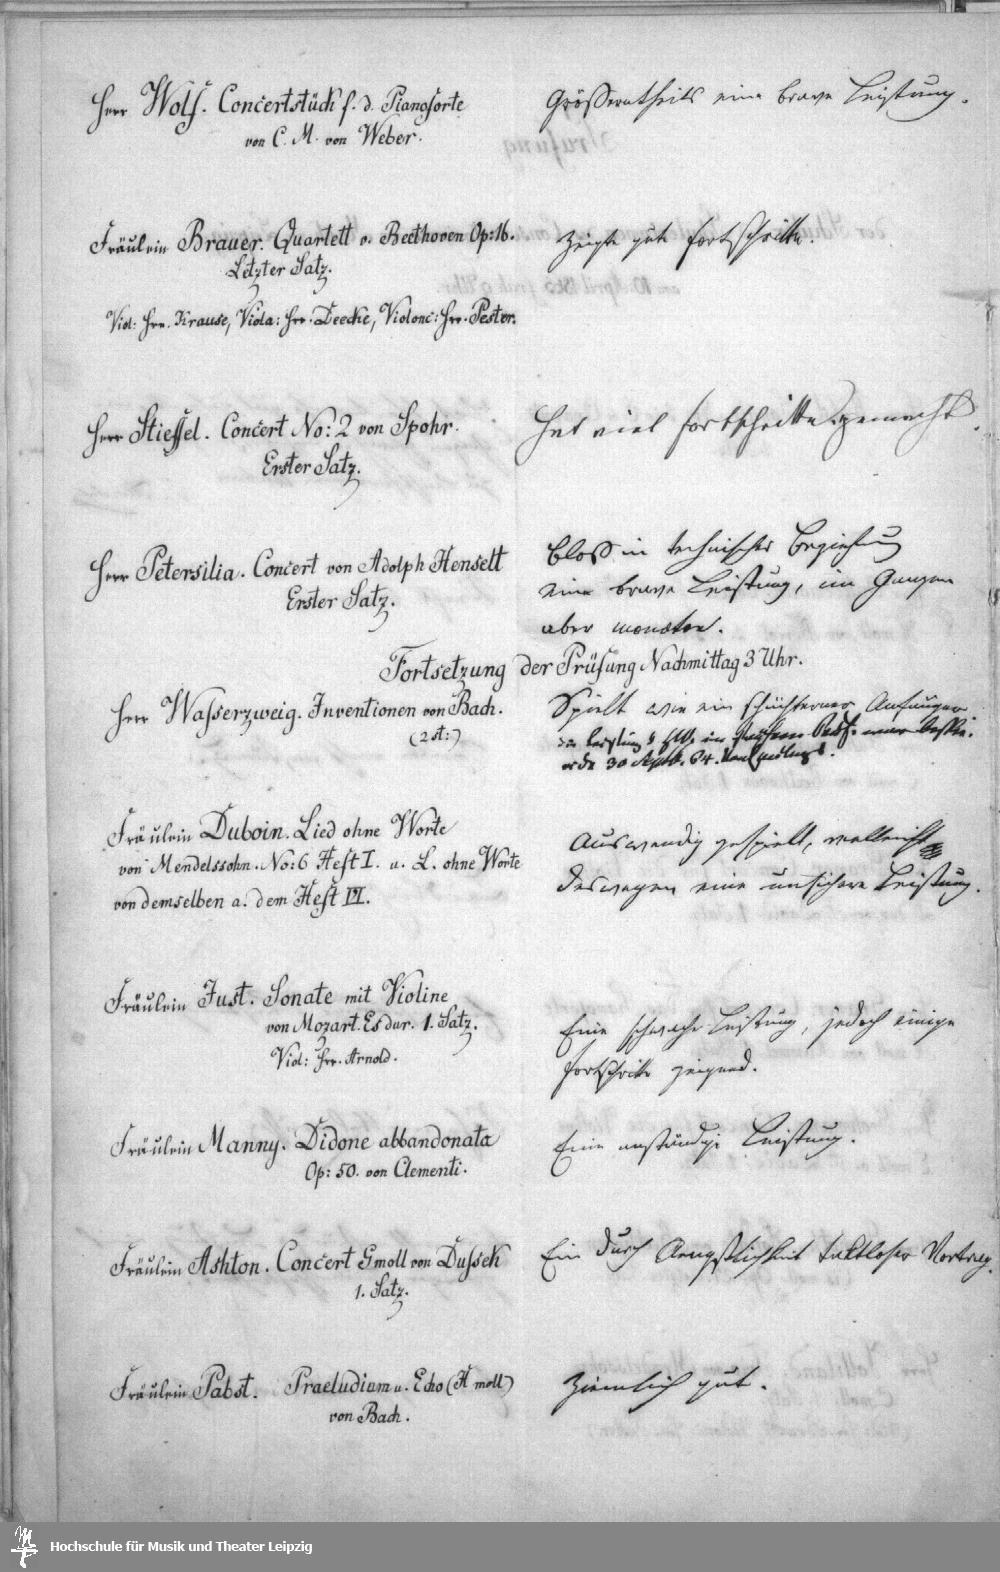 Herr Wolf. Concertstück f. d. Pianoforte
von C. M. von Weber.
Grösserntheils eine brave Leistung.
Fräulein Brauer. Quartett v. Beethoven Op: 16.
Letzter Satz.
Viol: Hrr. Krause, Viola: Hrr. Deecke, Violonc: Hrr. Pester.
Zeigte gute Fortschritte.
Herr Stieffel. Concert No: 2 von Spohr.
Erster Satz.
Hat viel Fortschritte gemacht.
Herr Petersilia. Concert von Adolph Henselt
Erster Satz.
Bloss in technischer Beziehung
eine brave Leistung, im Ganzen
aber monoton.
Fortsetzung der Prüfung Nachmittag 3 Uhr.
Herr Wasserzweig. Inventionen von Bach.
(2 st:)
Spielt wie ein schüchterner Anfänger
30 Septb. 64.
Fräulein Duboin. Lied ohne Worte
von Mendelssohn. No: 6 Heft I. u. L. ohne Worte
von demselben a. dem Heft VI.
Auswendig gespielt, vielleicht
deswegen eine unsichere Leistung.
Fräulein Just. Sonate mit Violine
von Mozart. Es dur. 1. Satz.
Viol: Hrr. Arnold.
Eine schwache Leistung, jedoch einige
Fortschritte zeigend.
Fräulein Manny. Didone abbandonata
Op: 50. von Clementi.
Eine anständige Leistung.
Fräulein Ashton. Concert Gmoll von Dussek
1. Satz.
Ein durch Aengstlichkeit taktloser Vortrag.
Fräulein Pabst. Praeludium u. Echo (H moll)
von Bach.
Ziemlich gut.
Hochschule für Musik und Theater Leipzig